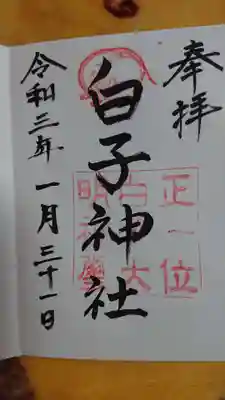 奉拝
白子神社
正一位
白大
明神璽
令和三年一月三十一日